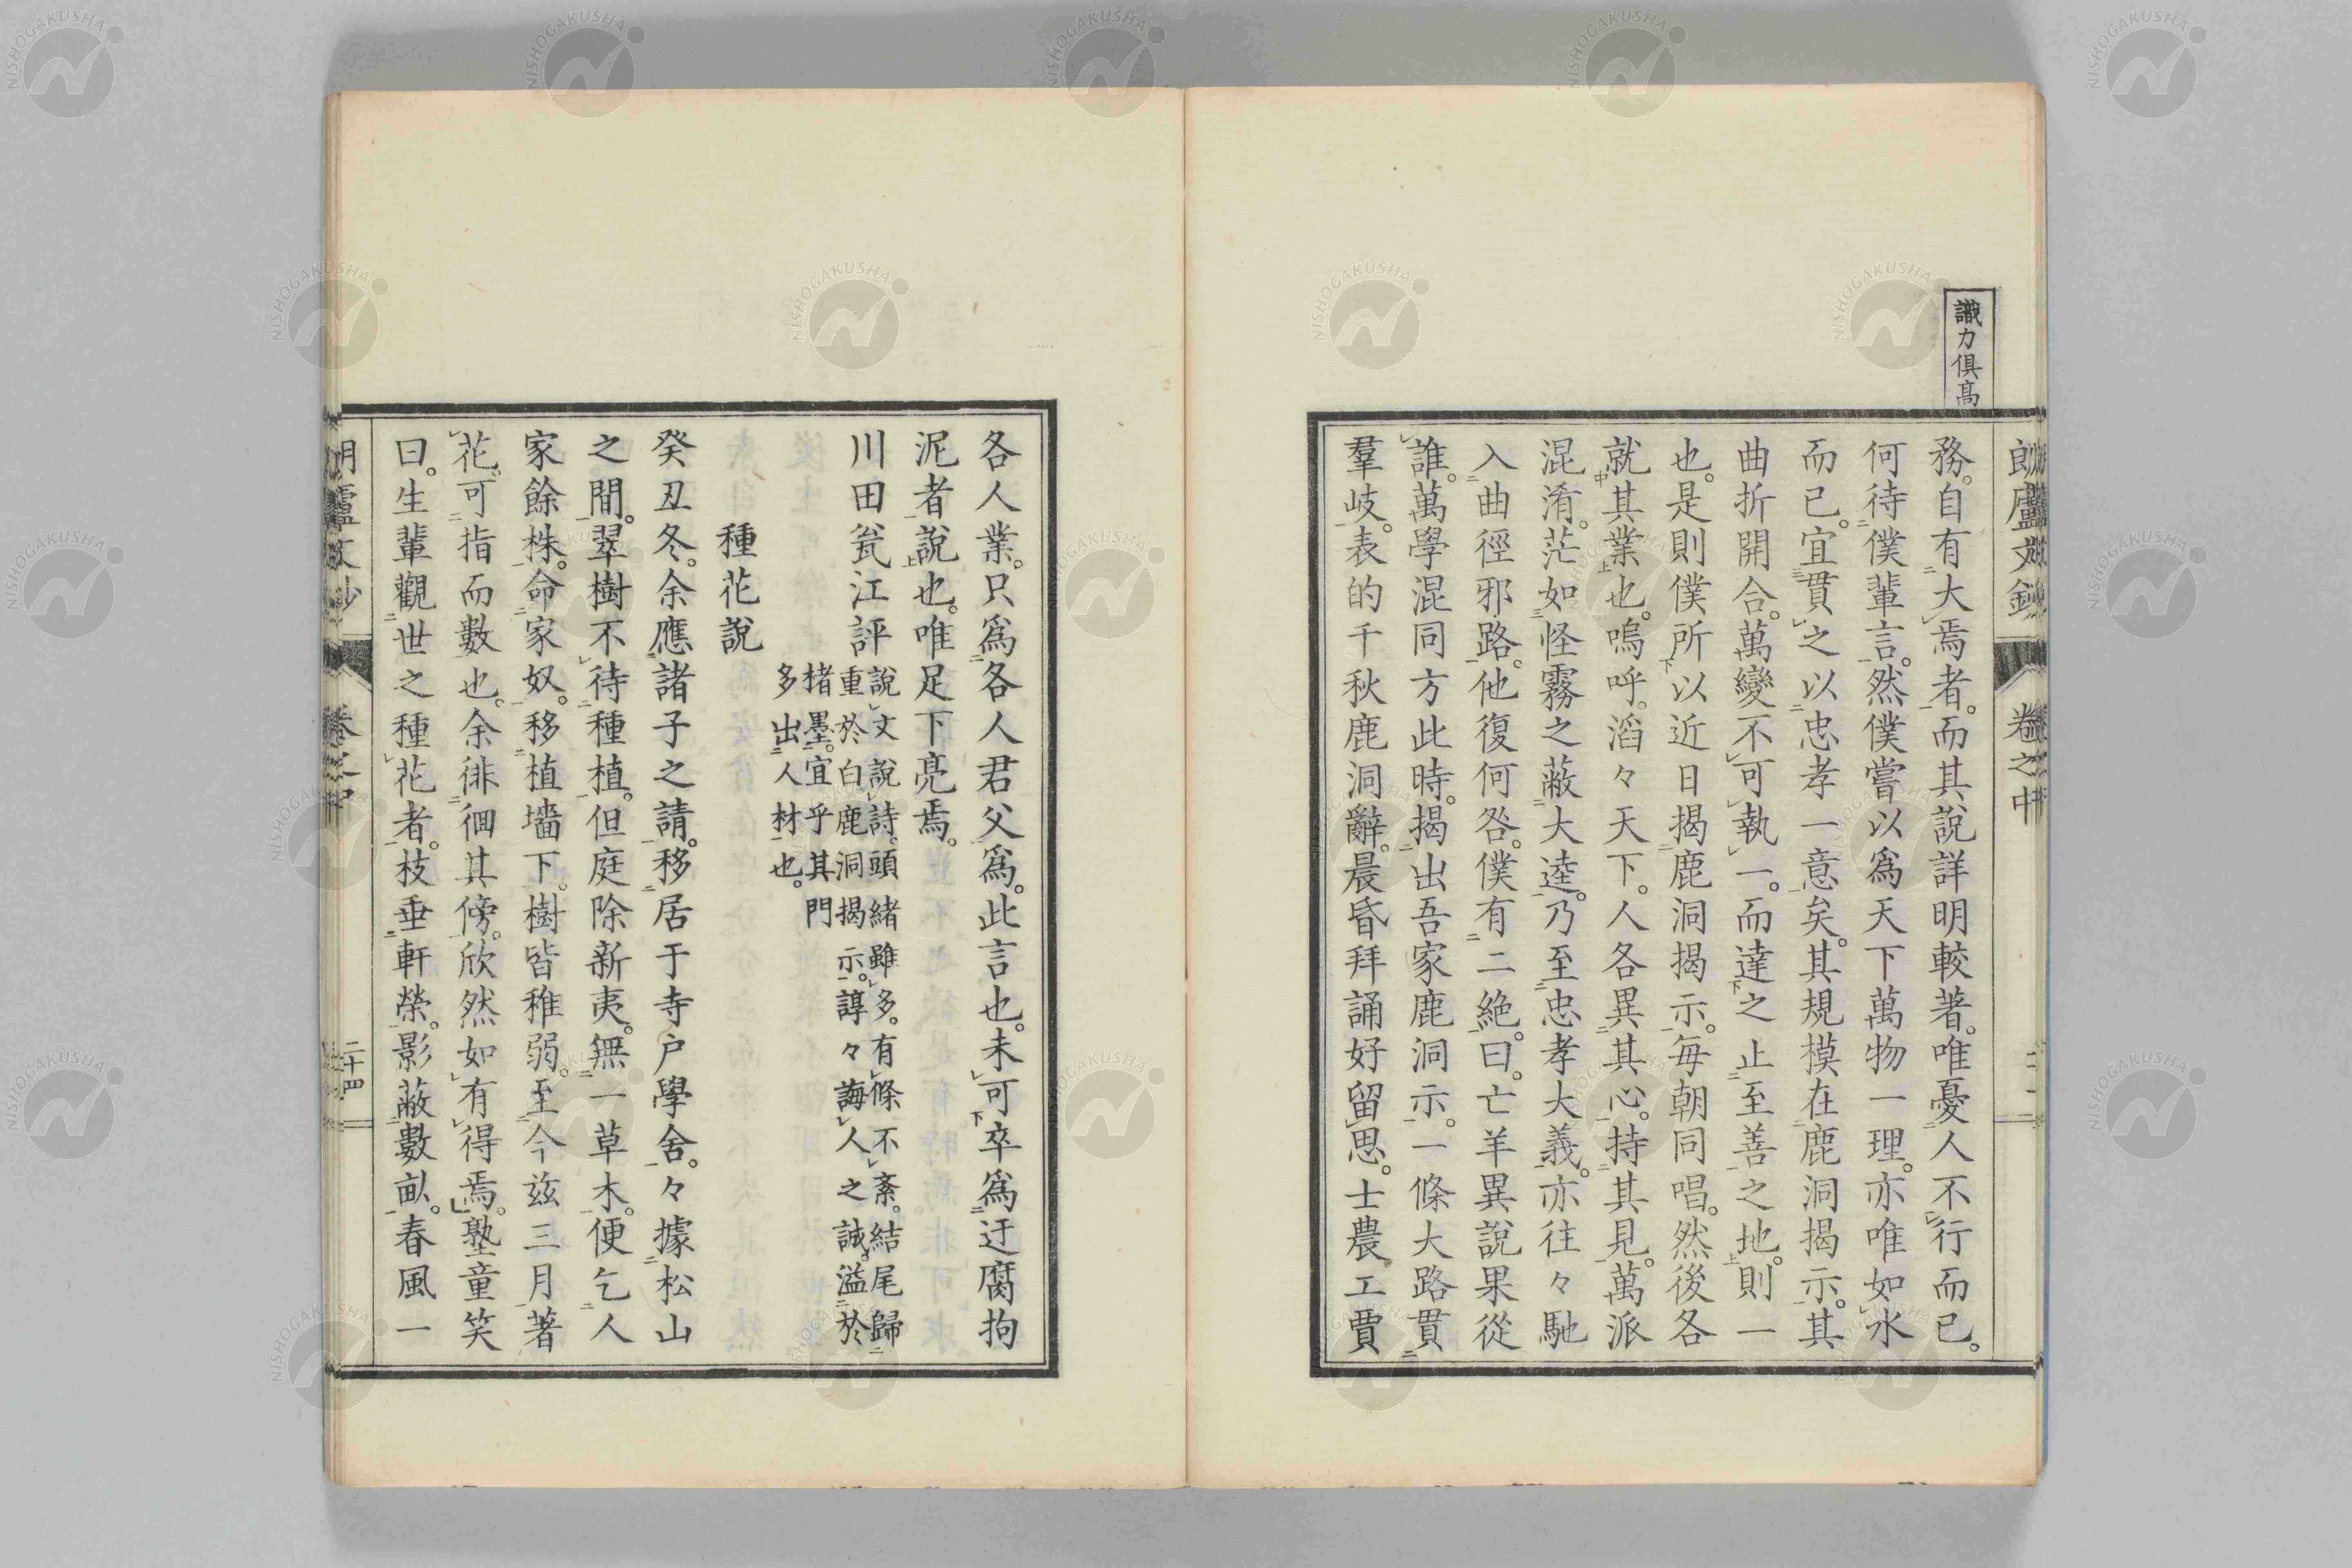 識力俱高
務。自有大焉者。而其說詳明較著。唯憂人不行而已。
何待僕輩言。然僕嘗以爲天下萬物一理。亦唯如水
而已。宜貫之以忠孝一意矣。其規模在鹿洞揭示。其
曲折開合。萬變不可執一。而達之止至善之地。則一
也。是則僕所以近日揭鹿洞揭示。每朝同唱。然後各
就其業也。嗚呼。滔々天下。人各異其心。持其見。萬派
混淆。茫如怪霧之蔽大逵。乃至忠孝大義。亦往々馳
入曲徑邪路。他復何咎。僕有二絶。曰。亡羊異說果從
誰。萬學混同方此時。揭出吾家鹿洞示。一條大路貫
羣岐。表的千秋鹿洞辭。晨昏拜誦好留思。士農工賈
各人業。只爲各人君父爲。此言也。未可卒爲迂腐拘
泥者說也。唯足下亮焉。
川田瓮江評
說文說詩。頭緒雖多。有條不紊。結尾歸
重於白鹿洞揭示。諄々誨人之誠。溢於
楮墨。宜乎其門
多出人材也。
種花說
癸丑冬。余應諸子之請。移居于寺戶學舍。々據松山
之間。翠樹不待種植。但庭除新夷。無一草木。便乞人
家餘株。命家奴。移植墻下。樹皆稚弱。至今玆三月著
花。可指而數也。余徘徊其傍。欣然如有得焉。塾童笑
曰。生輩觀世之種花者。枝垂軒榮。影蔽數畝。春風一
卷之中
二十四
NISHOGAKUSHA